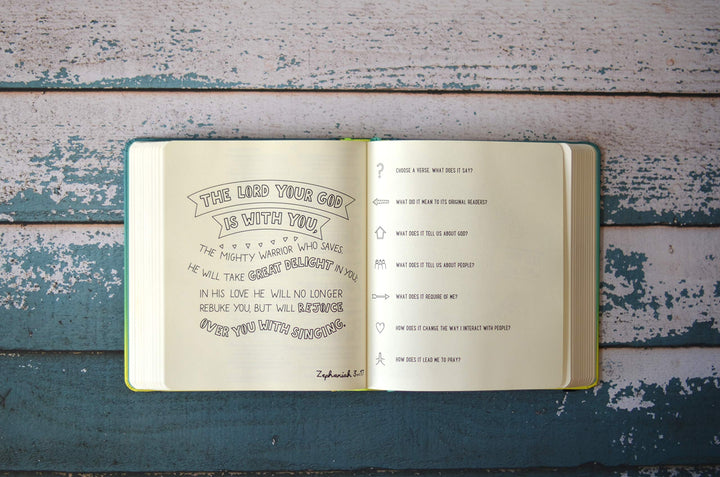 THE LORD YOUR GOD
IS WITH YOU,
THE MIGHTY WARRIOR WHO SAVES.
HE WILL TAKE GREAT DELIGHT IN YOU;
IN HIS LOVE HE WILL NO LONGER
REBUKE YOU, BUT WILL REJOICE
OVER YOU WITH SINGING.
Zephaniah 3:17
CHOOSE A VERSE. WHAT DOES IT SAY?
WHAT DID IT MEAN TO ITS ORIGINAL READERS?
WHAT DOES IT TELL US ABOUT GOD?
WHAT DOES IT TELL US ABOUT PEOPLE?
WHAT DOES IT REQUIRE OF ME?
HOW DOES IT CHANGE THE WAY I INTERACT WITH PEOPLE?
HOW DOES IT LEAD ME TO PRAY?